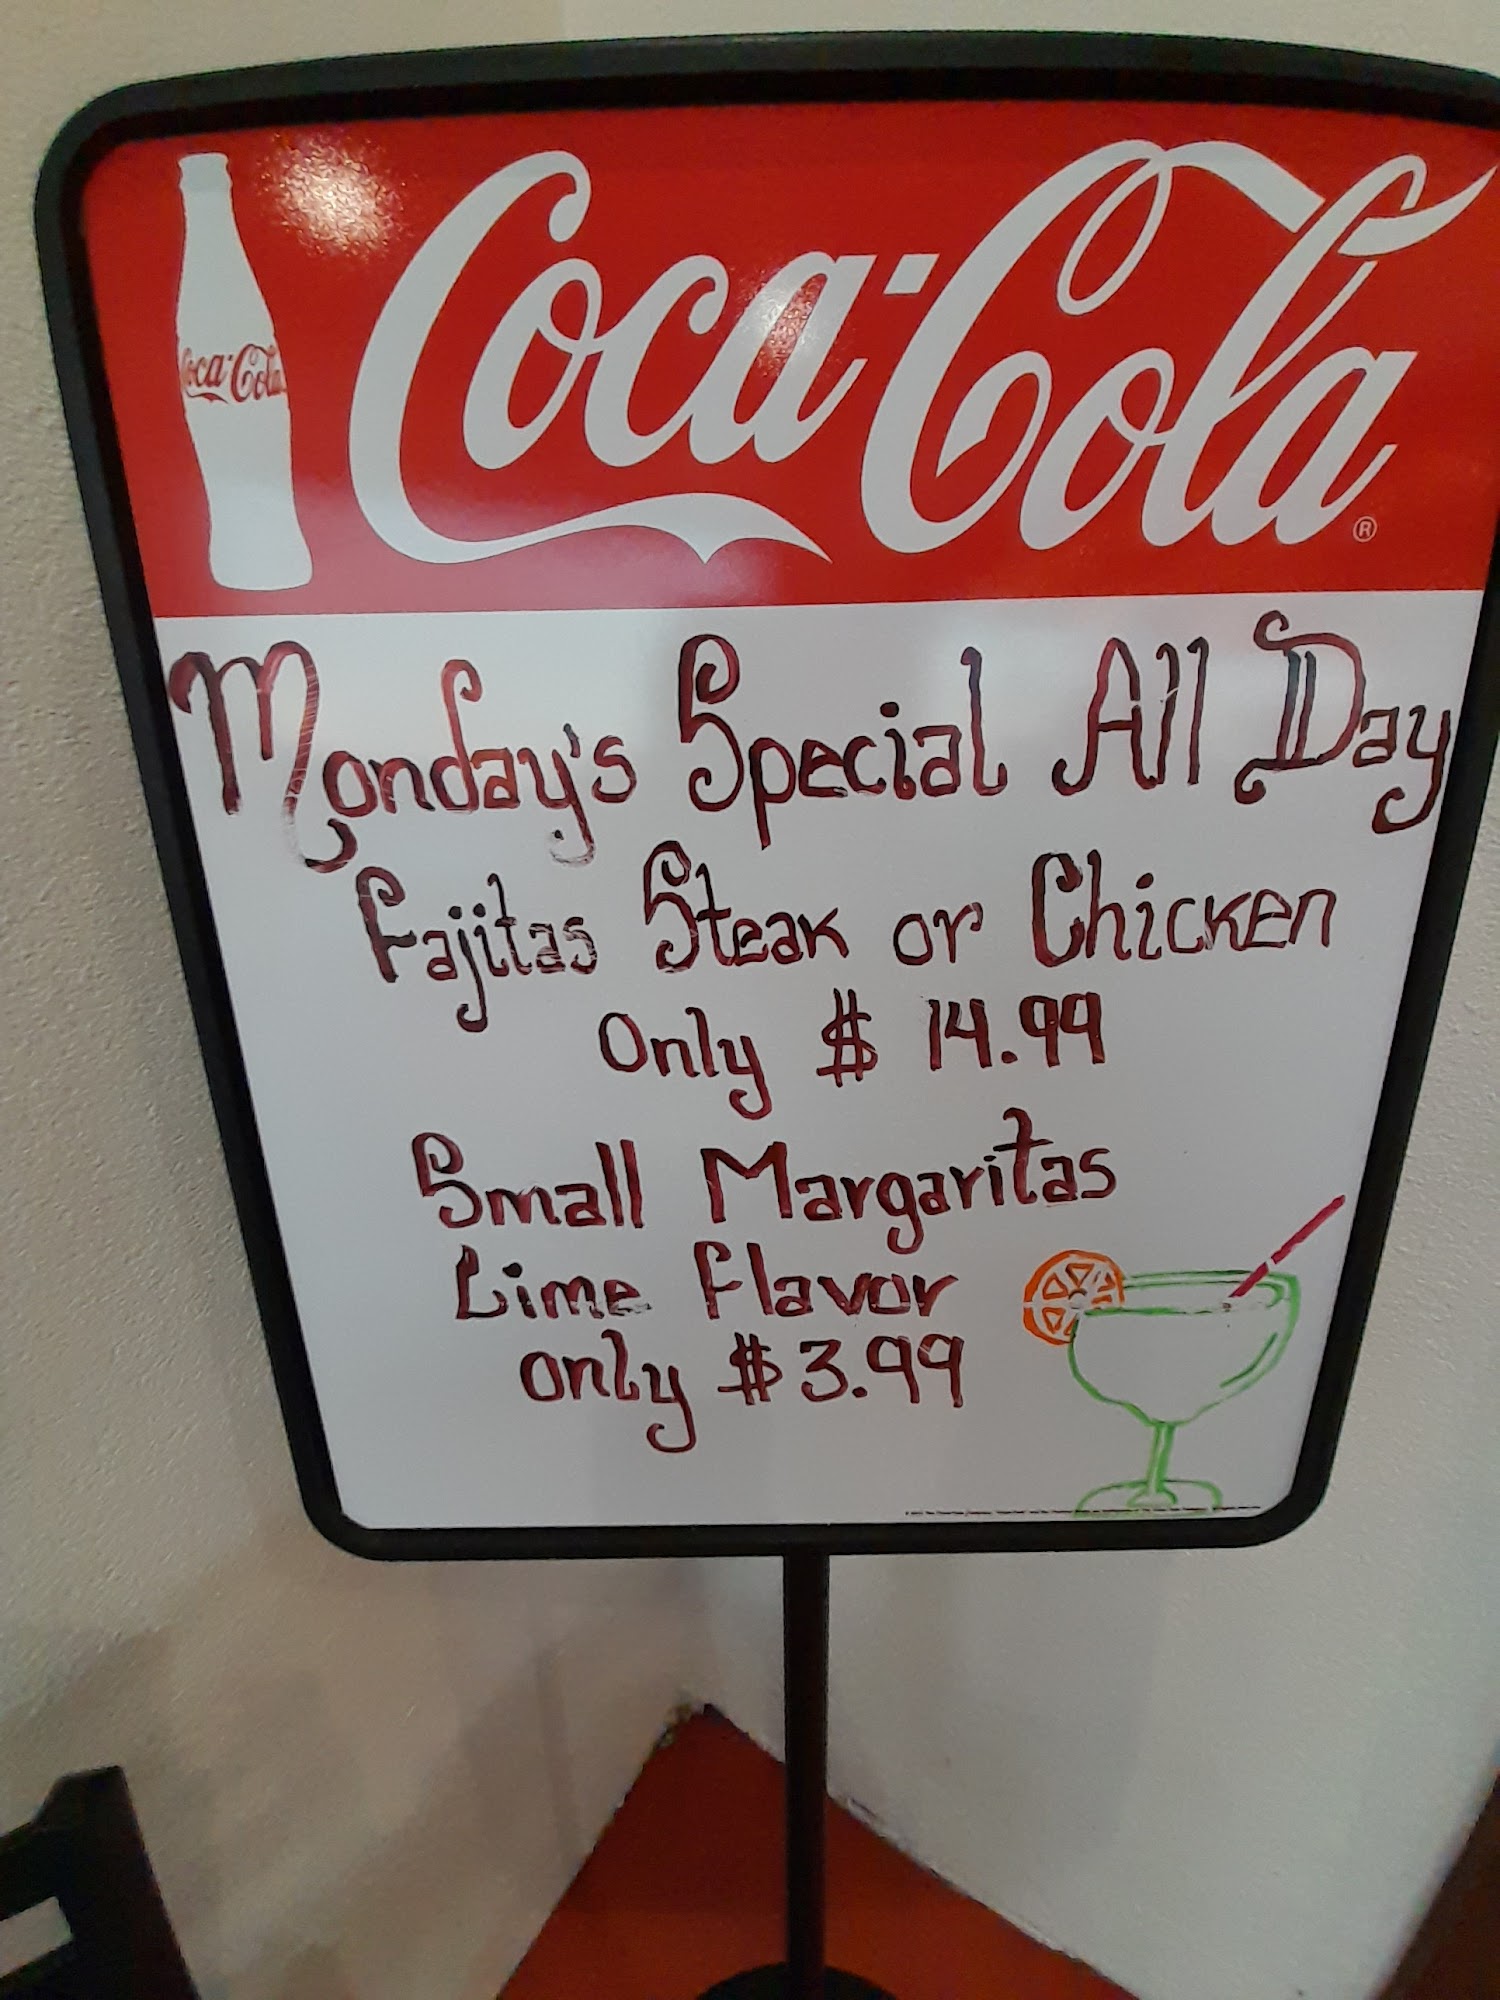 Coca-Cola
Coca-Cola®
Monday's Special All Day
Fajitas Steak or Chicken
Only $ 14.99
Small Margaritas
Lime Flavor
only $3.99